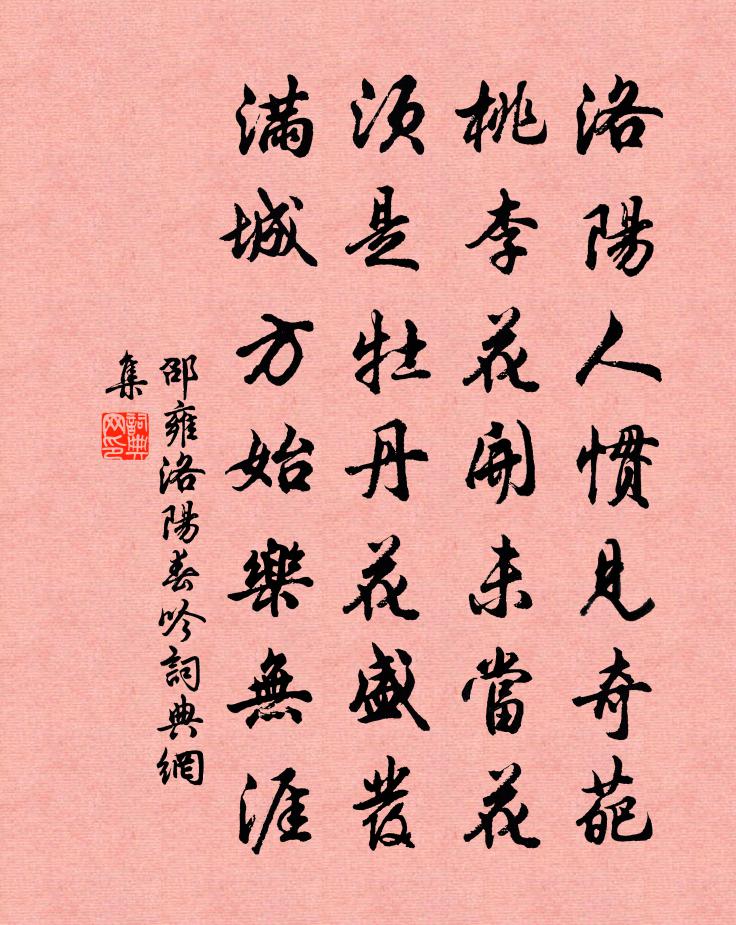 洛陽人慣見奇葩
桃李花開未當花
須是牡丹花盛發
滿城方始樂無涯
邵雍洛陽春吟詞典網
集
詞典
网印